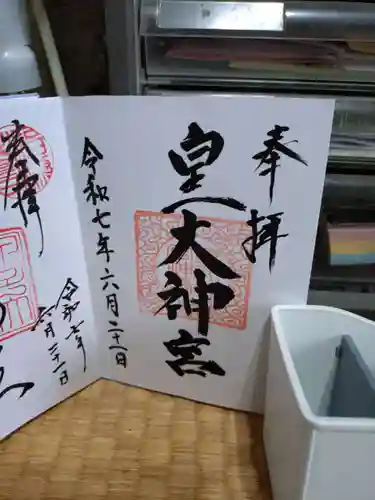 奉拝
皇大神宮
令和七年六月二十二日
令和七年
六月二十一日